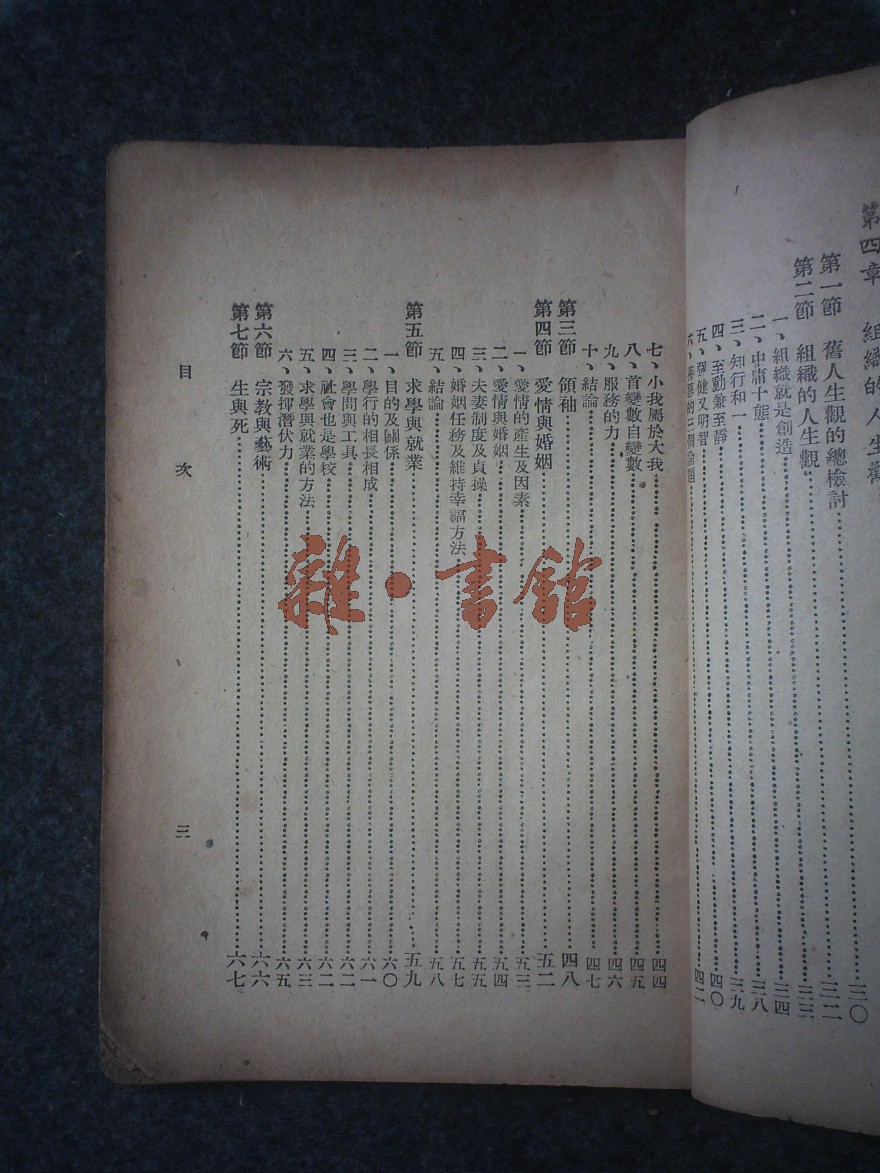 第四章 組織的人生觀……三〇
第一節 舊人生觀的總檢討……三二
第二節 組織的人生觀……三三
一、組織就是創造……三四
二、中庸十態……三八
三、知行和一……三九
四、至動兼至靜……四〇
五、剛健又明智……四二
六、善惡的三個
七、小我屬於大我……四四
八、首變數自變數……四五
九、服務的力……四六
十、結論……四七
第三節 領袖……四八
第四節 愛情與婚姻……五二
一、愛情的產生及因素……五三
二、愛情與婚姻……五四
三、夫妻制度及貞操……五五
四、婚姻任務及維持幸福方法……五七
五、結論……五八
第五節 求學與就業……五九
一、目的及關係……六〇
二、學行的相長相成……六一
三、學問與工具……六二
四、社會也是學校……六二
五、求學與就業的方法……六三
六、發揮潛伏力……六五
第六節 宗教與藝術……六六
第七節 生與死……六七
目次 三
雜·書館